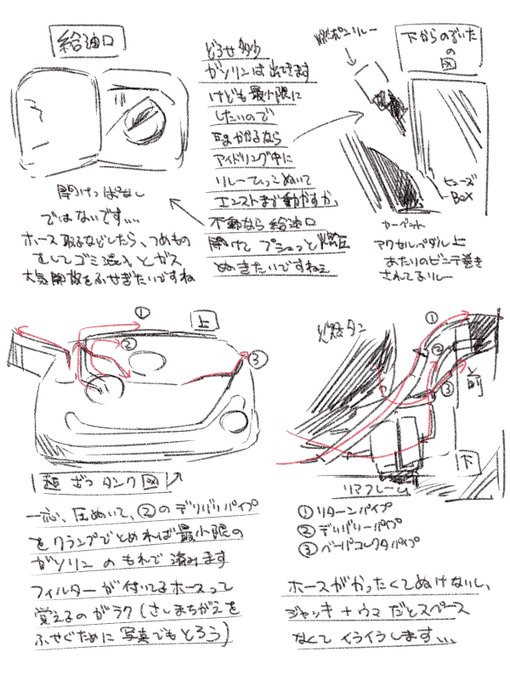 給油口
開けっぱなし
ではないです…
ホース取るなどしたら、つめもの
をしてゴミ混入とガス
大気開放をふせぎたいですね
どうせ多少
ガソリンは出てきます
けども最小限に
したいので
Eまだかかるなら
アイドリング中に
リレーひっこぬいて
エンストまで動かすか、
不動なら給油口
開けて プシュっと燃圧
ぬきたいですねぇ
燃ポンリレー
下からのぞいた
の
図
ヒューズ
BOX
カーペット
アクセルペダル上
あたりのビニテ巻き
されてるリレー
①
②
③
上
超ざつタンク図
一応、圧ぬいて、②のデリバリパイプ
をクランプでとめれば最小限の
ガソリンのもれで済みます
フィルターが付いてるホースって
覚えるのがラク（さしまちがえを
ふせぐために写真でもとろう）
燃タン
①
②
③
前
下
リアフレーム
①リターンパイプ
②デリバリーパイプ
③ベーパコレクタパイプ
ホースがかったくてぬけないし、
ジャッキ+ウマだとスペース
なくてイライラします…